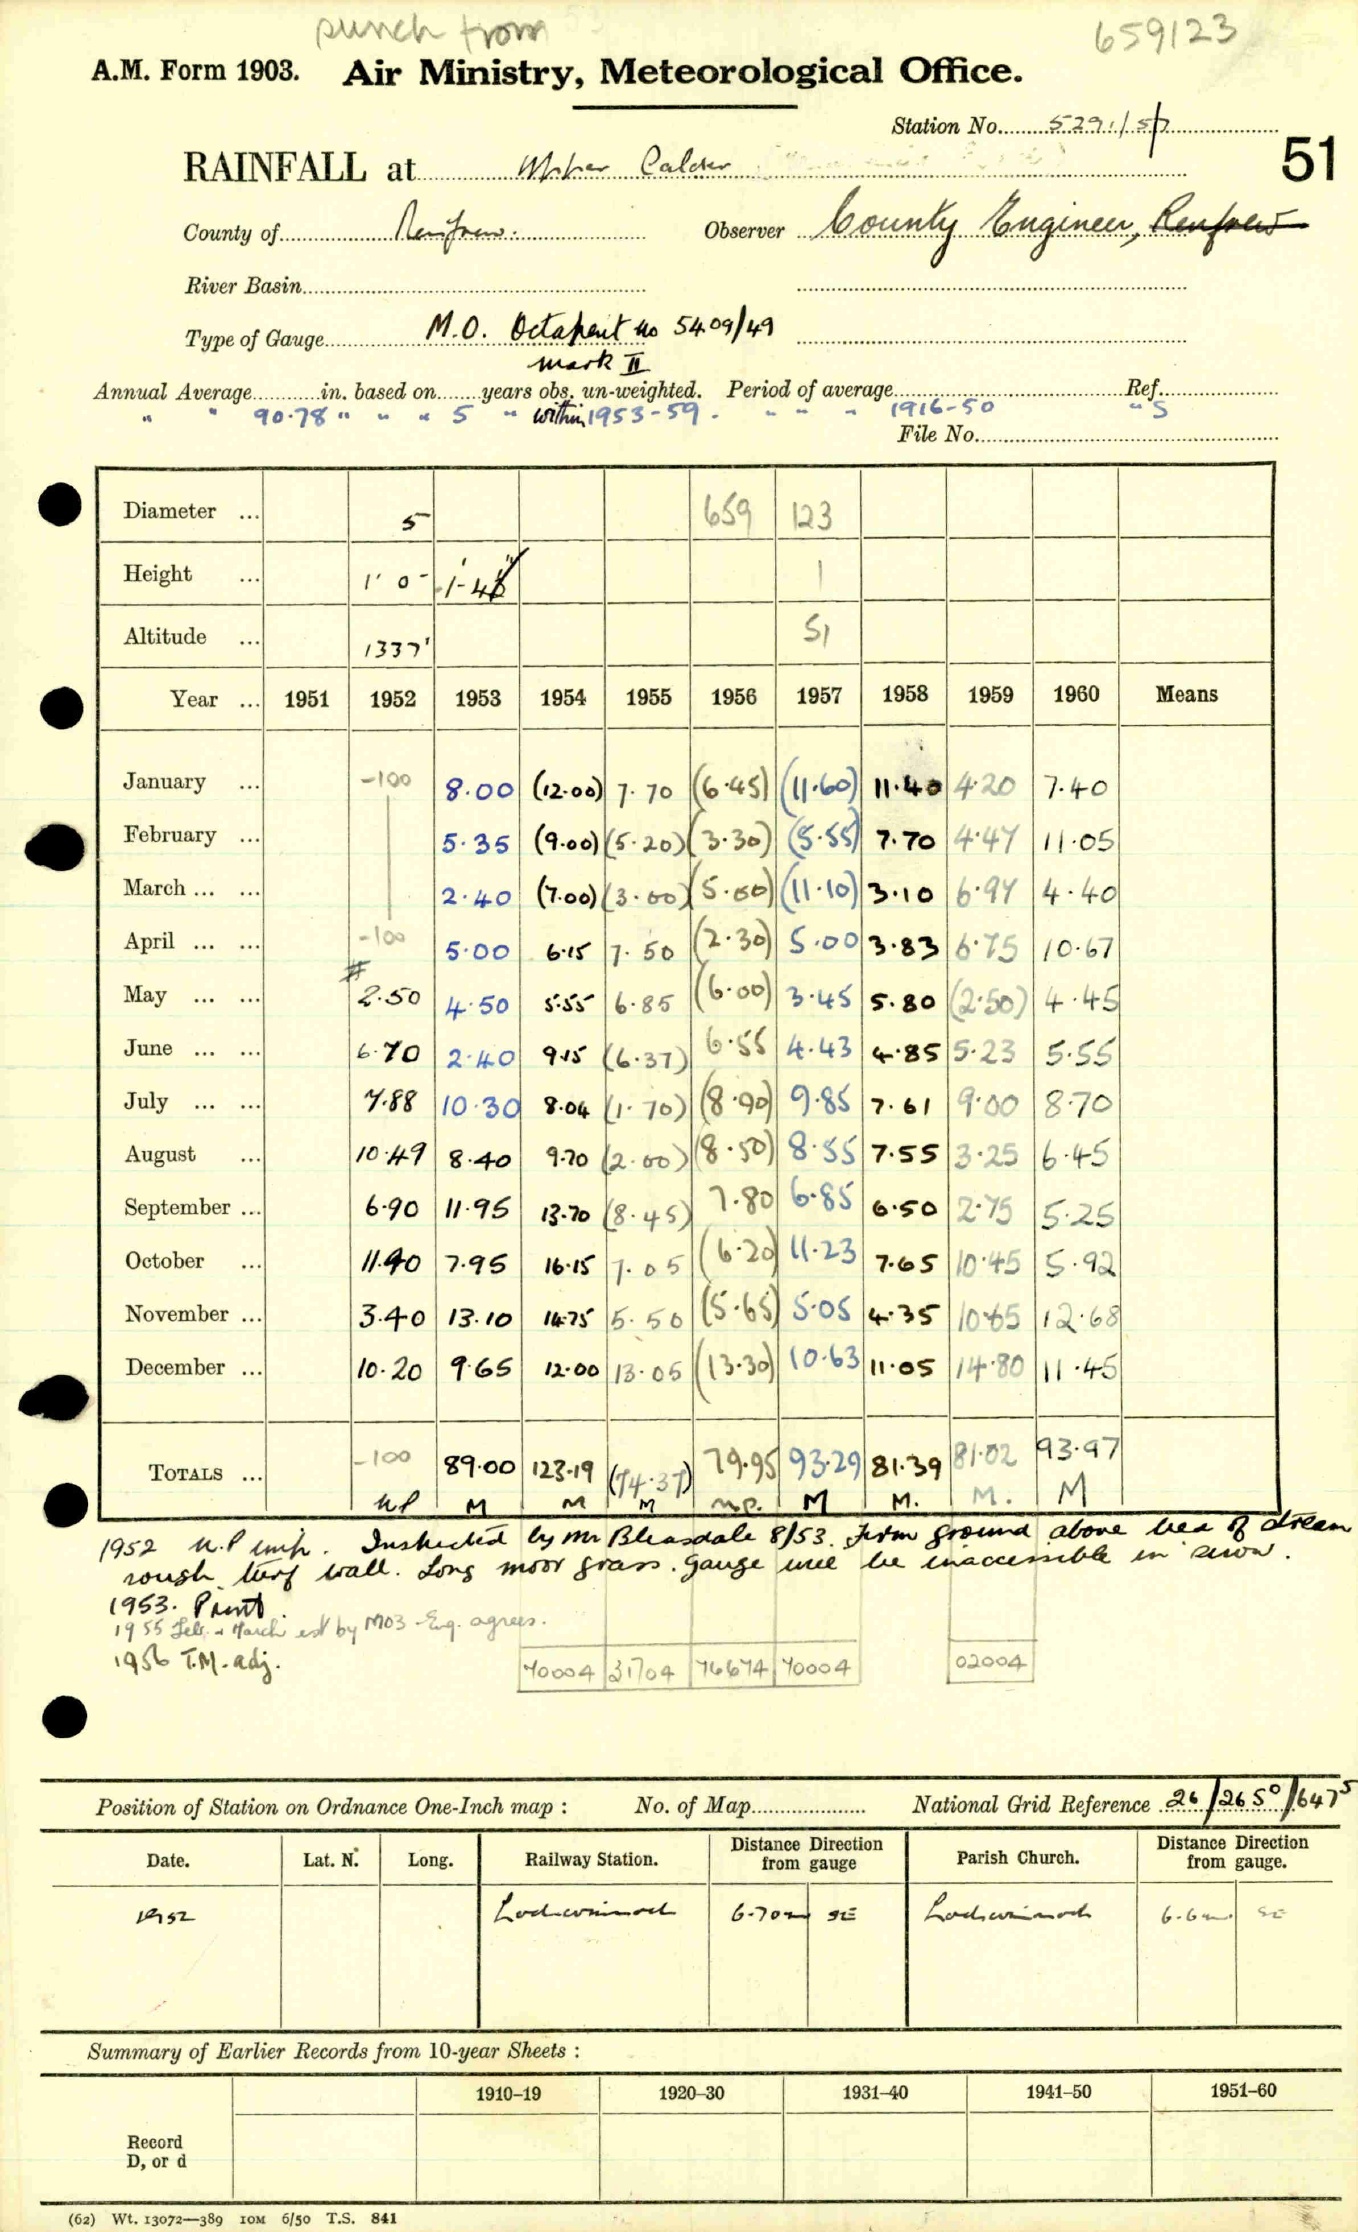 punch from 53
659123
A.M. Form 1903. Air Ministry, Meteorological Office.
Station No. 5291/57
51
RAINFALL at Upper Calder
County of Renfrew. Observer County Engineer, Renfrew
River Basin
Type of Gauge M.O. Octapent no 5409/49
mark II
Annual Average in. based on years obs. un-weighted. Period of average Ref.
" " 90.78 " " " 5 " within 1953-59. " " " 1916-50 " S
File No.
Diameter ... 5 659 123
Height ... 1' 0" 1'-4" 1
Altitude ... 1337' 51
Year ... 1951 1952 1953 1954 1955 1956 1957 1958 1959 1960 Means
January ... -100 8.00 (12.00) 7.70 (6.45) (11.60) 11.40 4.20 7.40
February ... 5.35 (9.00) (5.20) (3.30) (5.55) 7.70 4.47 11.05
March ... ... 2.40 (7.00) (3.00) (5.00) (11.10) 3.10 6.97 4.40
April ... ... -100 5.00 6.15 7.50 (2.30) 5.00 3.83 6.75 10.67
May ... ... # 2.50 4.50 5.55 6.85 (6.00) 3.45 5.80 (2.50) 4.45
June ... ... 6.70 2.40 9.15 (6.37) 6.55 4.43 4.85 5.23 5.55
July ... ... 7.88 10.30 8.04 (1.70) (8.90) 9.85 7.61 9.00 8.70
August ... 10.49 8.40 9.70 (2.00) (8.50) 8.55 7.55 3.25 6.45
September ... 6.90 11.95 13.70 (8.45) 7.80 6.85 6.50 2.75 5.25
October ... 11.90 7.95 16.15 7.05 (6.20) 11.23 7.65 10.45 5.92
November ... 3.40 13.10 14.75 5.50 (5.65) 5.05 4.35 10.65 12.68
December ... 10.20 9.65 12.00 13.05 (13.30) 10.63 11.05 14.80 11.45
TOTALS ... -100 89.00 123.19 (74.37) 79.95 93.29 81.39 81.02 93.97
NP M M M m.p. M M. M. M
1952 N.P imp. Inspected by Mr Bleasdale 8/53. Firm ground above bed of stream
rough turf wall. Long moor grass. Gauge will be inaccessible in snow.
1953. Print.
1955 Feb. & March est by MO3 - Eng. agrees.
1956 T.M. adj.
70004 31704 76674 70004 02004
Position of Station on Ordnance One-Inch map : No. of Map National Grid Reference 26/265⁰/647⁵
Date. Lat. N. Long. Railway Station. Distance Direction from gauge Parish Church. Distance Direction from gauge.
1952 Lochwinnoch 6.70m SE Lochwinnoch 6.6m. SE
Summary of Earlier Records from 10-year Sheets :
1910–19 1920–30 1931–40 1941–50 1951–60
Record
D, or d
(62) Wt. 13072—389 10M 6/50 T.S. 841